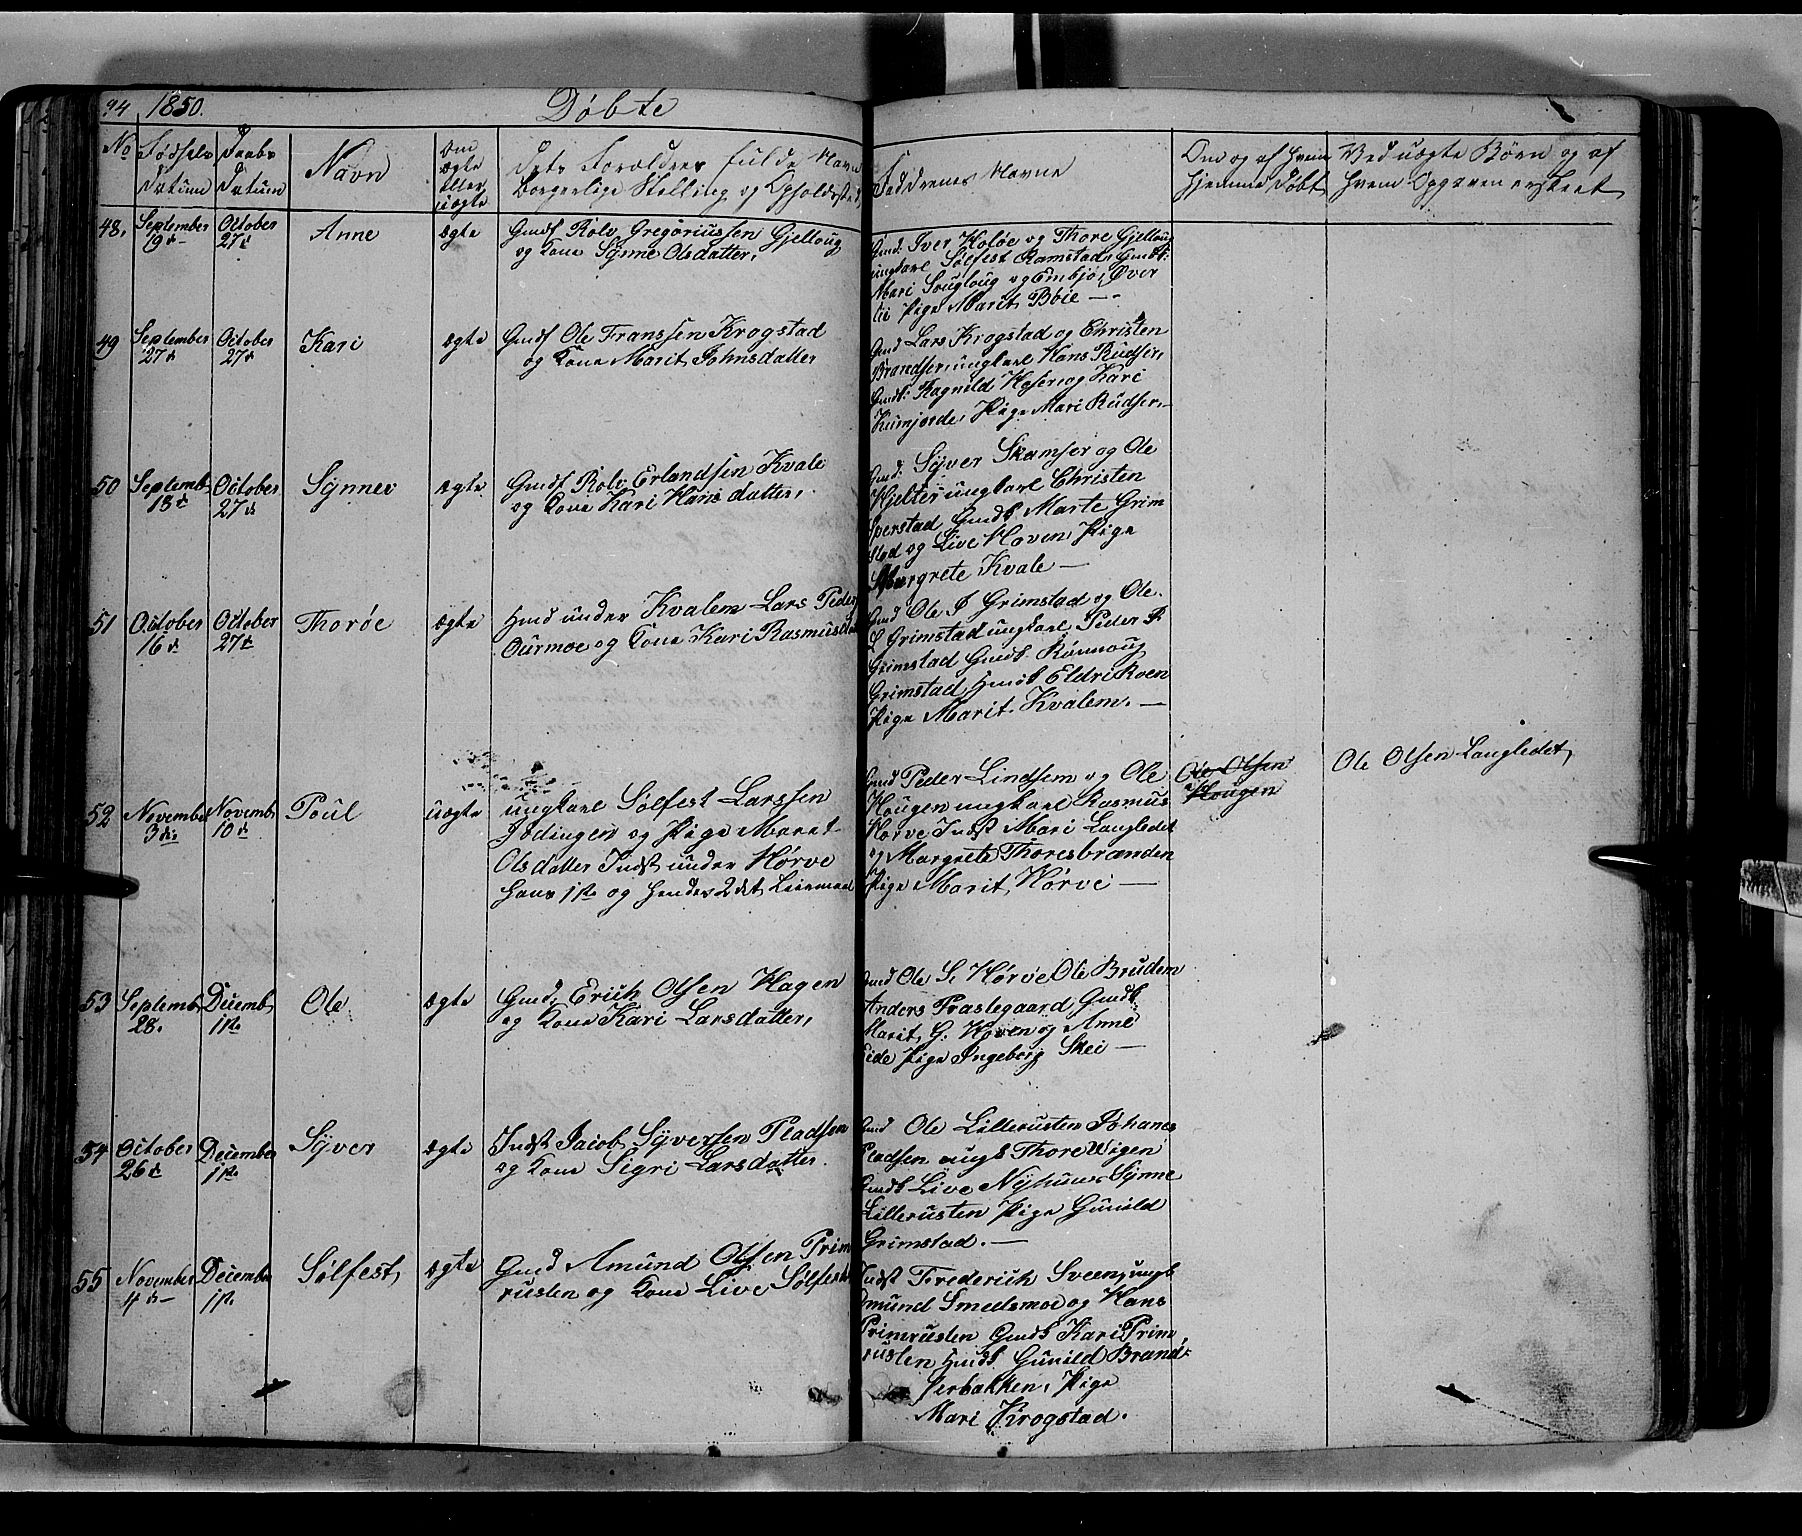 94 1850. Döbte
No
Fødsels
Datum
Daabs
Datum
Navn
Om
ægte
eller
uægte
Forældres fulde Navne
Borgerlige Stilling og Opholdssted
Faddrenes Navne
Om og af hvem
hjemme døbt
Ved uægte Børn og af
hvem Opgaven er skeet
48. September 19d October 27d Anne ægte
Gmdf Rolv Gregoriussen Gjelloug
og Kone Synne Olsdatter,
Gmd. Iver Holøe og Thore Gjelloug
ungkarl Sølfest Ramstad, Gmdk:
Mari Sougloug og Embjø, Øver
lie Pige Marit Böie —
49 September 27d October 27d Kari ægte
Gmdf Ole Franssen Krogstad
og Kone Marit Johnsdatter
Gmd Lars Krogstad og Christen
Brandser, ungkarl Hans Rudser,
Gmdk: Ragnild og Kari
Pige Mari Rudser,
50 Septemb. 18d October 27d Synnev ægte
Gmdf Rolv Erlandsen Kvale
og Kone Kari Hansdatter,
Gmd. Syver Skamser og Ole
Hjelter ungkarl Christen
Sperstad Gmdk Marte Grim
stad og Live Hoven Pige
Margrete Kvale —
51 October 16d October 27d Thorøe ægte
Hmd under Kvalem Lars Peders
Ourmoe og Kone Kari Rasmusd
Gmd Ole J Grimstad og Ole
L Grimstad ungkarl Peder P
Grimstad Gmdk. Rönnoug
Grimstad, Hmdk Eldri Roen
Pige Marit. Kvalem. —
52 November 3die Novemb. 10d Poul uægte
ungkarl Sølfest Larssen
og Pige Marit
Olsdatter Indst under Hörve
hans 1ste og hendes 2det Leiermaal
Gmd Peder Lindsem og Ole
Hougen ungkarl Rasmus
Hörve Indst Mari Langledet
og Margrete Thoresbrænden
Pige Marit, Hörve —
Ole Olsen
Hougen
Ole Olsen Langledet,
53 Septemb. 28. Decemb. 1ste Ole ægte
Gmd, Erich Olsen Hagen
og Kone Kari Larsdatter,
Gmd Ole S. Hörve Ole Bruden
Anders Præstegaard Gmdk
Marit, G. Hoven og Anne
Eide Pige Ingeborg Skei —
54 October 26d December 1ste Syver ægte
Indst Jacob Syversen Pladsen
og Kone Sigri Larsdatter.
Gmd Ole Lillerusten Johanes
Pladsen ungk Thore Wigen
Gmdk Live Nyhuus Synne
Lillerusten Pige Gunild
Grimstad. —
55 November 4d December 1ste Sölfest, ægte
Gmd Amund Olsen Prim
rusten og Kone Live Sölfest
Indst Frederich Sveen, ungk
Amund Smedsmoe og Hans
Primrusten Gmdk Kari Prim
rusten Hmdk Gunild Brand-
serbakken, Pige
Mari Krogstad.